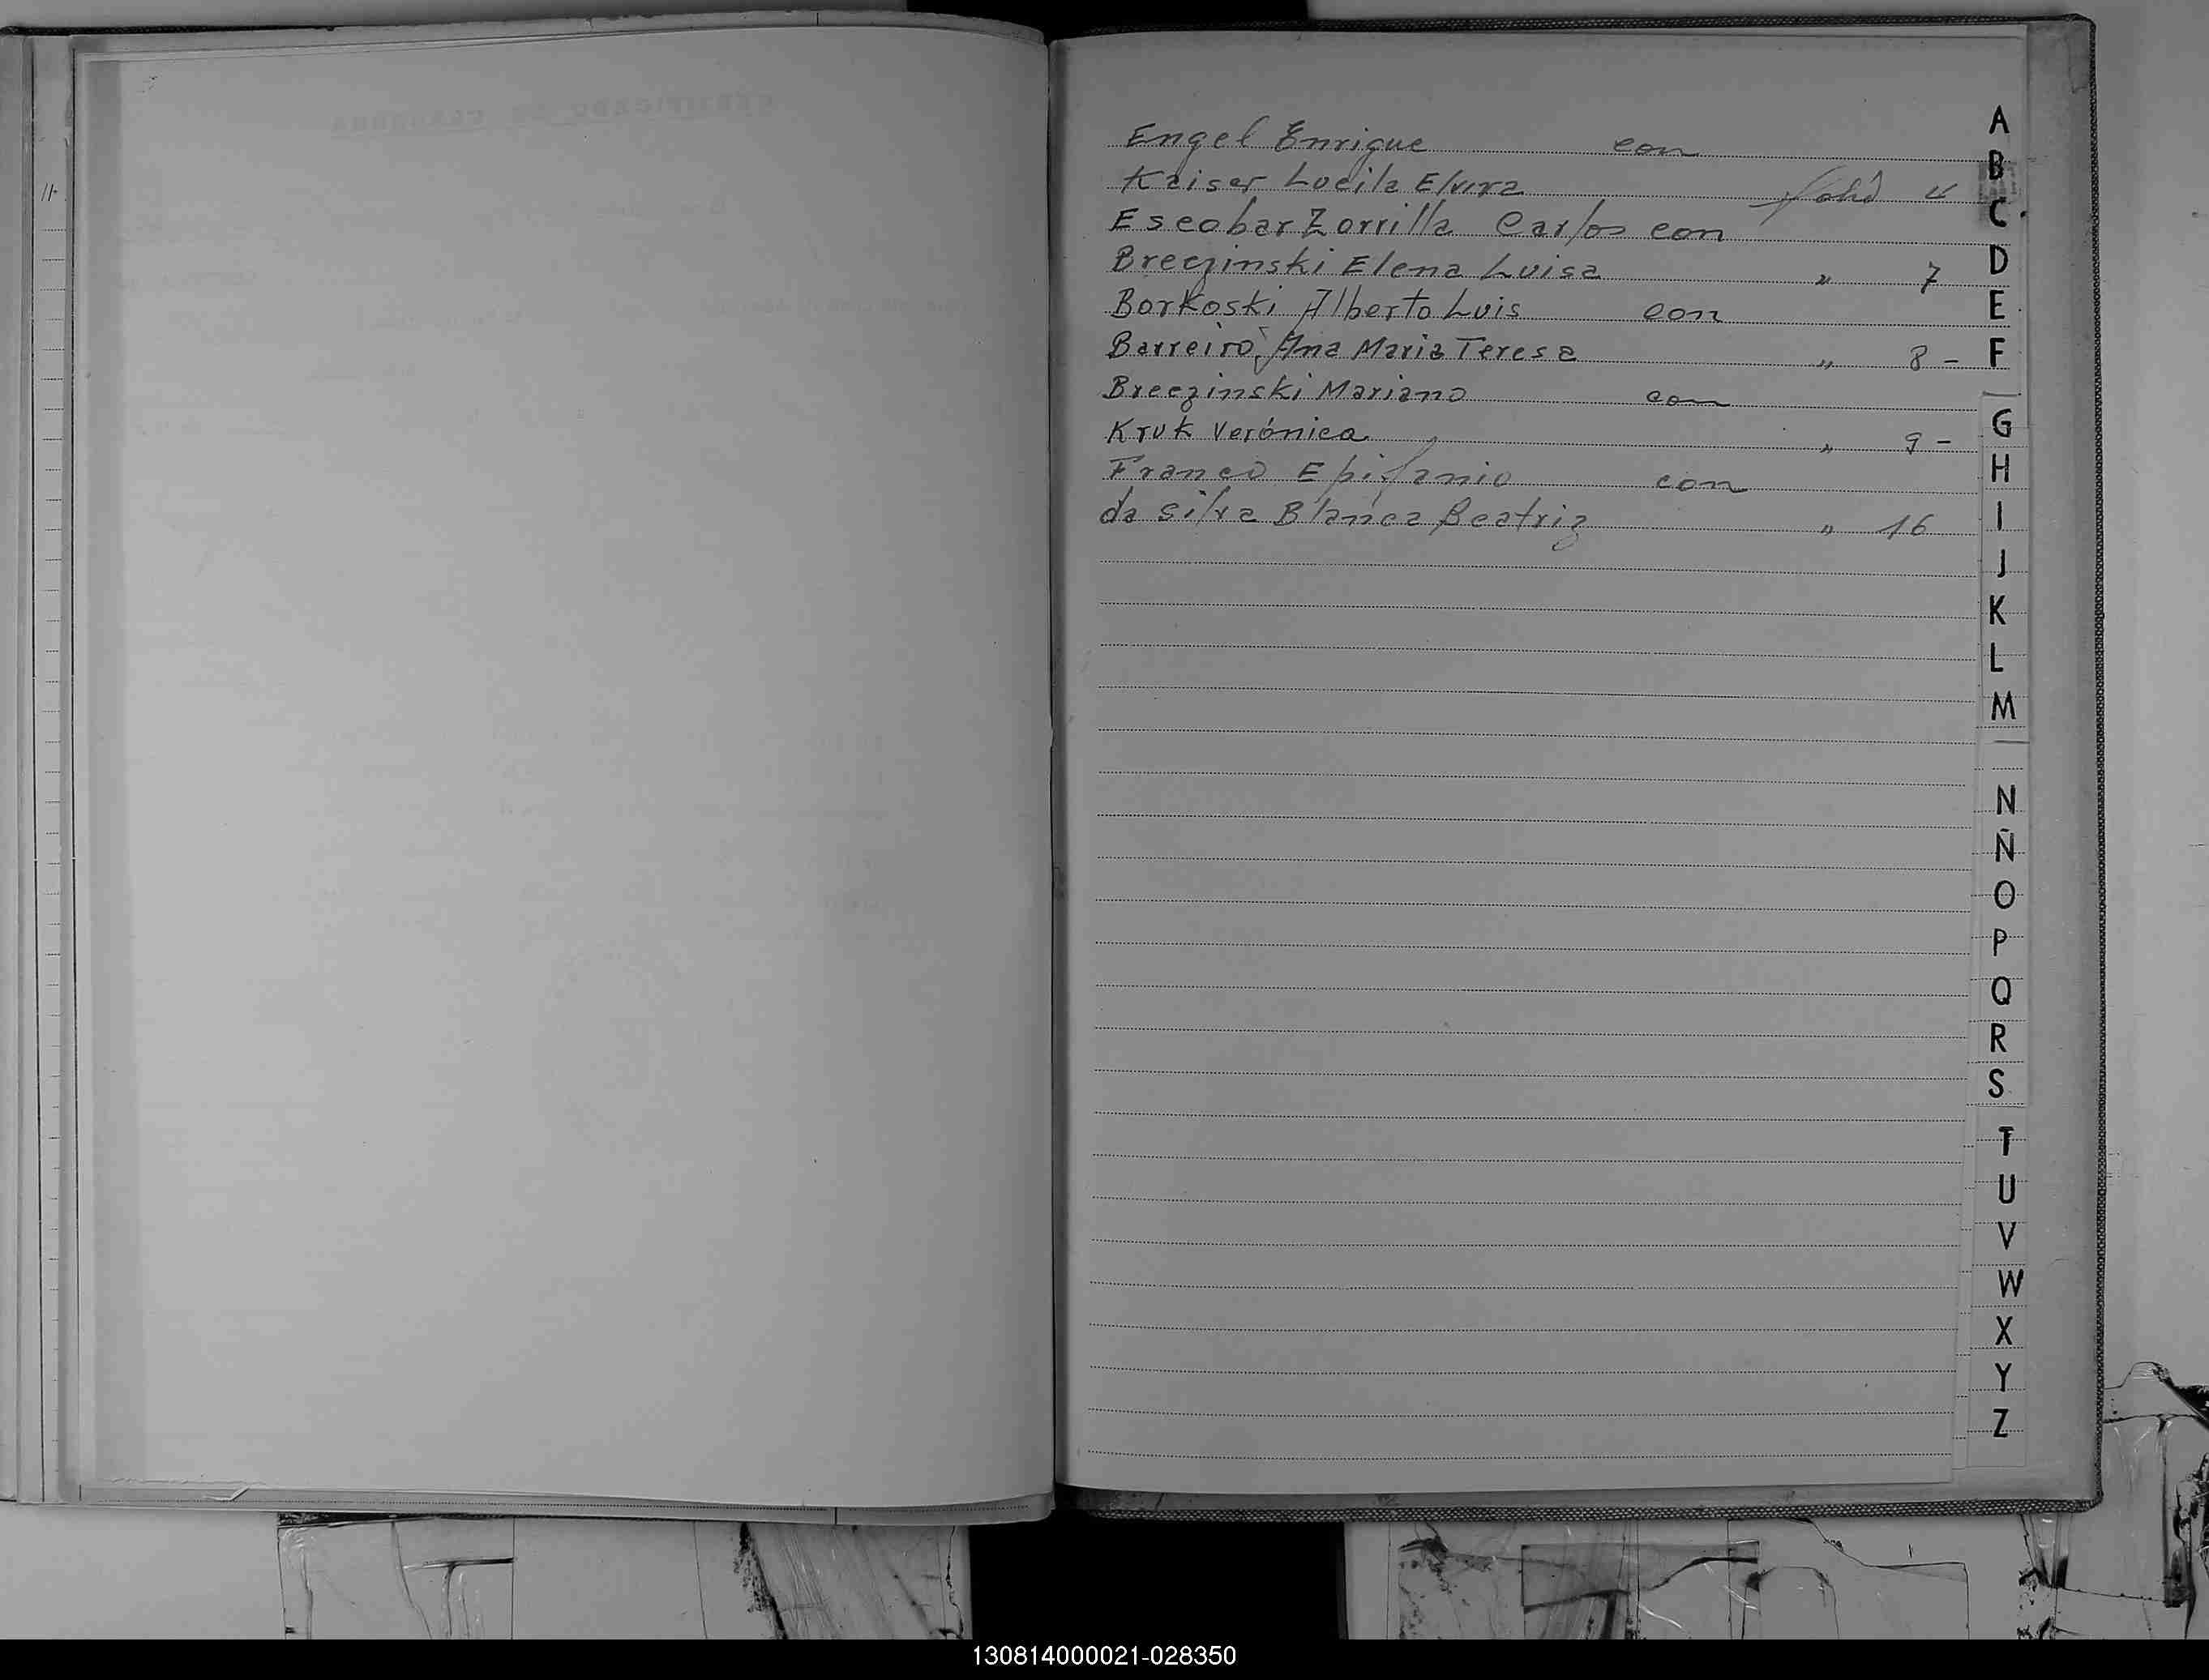 Engel Enrique con
Kaiser Lucila Elvira folio 4
Escobar Zorrilla Carlos con
Breczinski Elena Luisa " 7
Borkoski Alberto Luis con
Barreiro, Ana Maria Teresa " 8 -
Breczinski Mariano con
Kruk Verónica " 9 -
Franco Epifanio con
da Silva Blanca Beatriz " 16
A
B
C
D
E
F
G
H
I
J
K
L
M
N
Ñ
O
P
Q
R
S
T
U
V
W
X
Y
Z
130814000021-028350